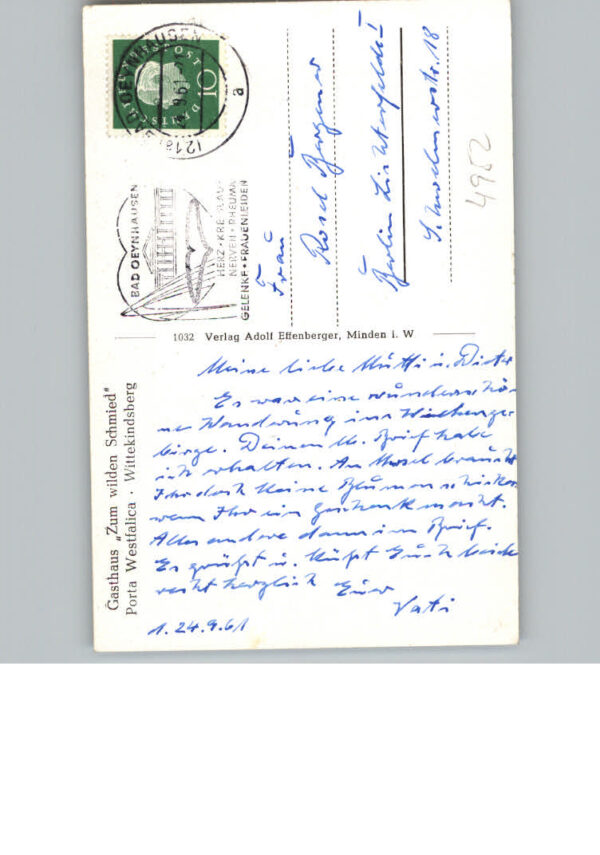 Gasthaus „Zum wilden Schmied"
Porta Westfalica · Wittekindsberg
1032 Verlag Adolf Effenberger, Minden i. W
DEUTSCHE BUNDESPOST
10
BAD OEYNHAUSEN
a
BAD OEYNHAUSEN
HERZ · KREISLAUF
NERVEN · RHEUMA
GELENKE · FRAUENLEIDEN
Frau
Rosel
Berlin Lichterfelde I
18
4952
Meine liebe Mutti u. Dieter
Es war eine wunderschö-
ne Wanderung ins Wiehenge-
birge. Deinen lb. Brief habe
ich erhalten. An braucht
Ihr doch keine Blumen schicken
wenn Ihr ein Geschenk macht.
Alles andere dann im Brief.
Es grüßt u. küßt Euch beide
recht herzlich Euer
Vati
24.9.61